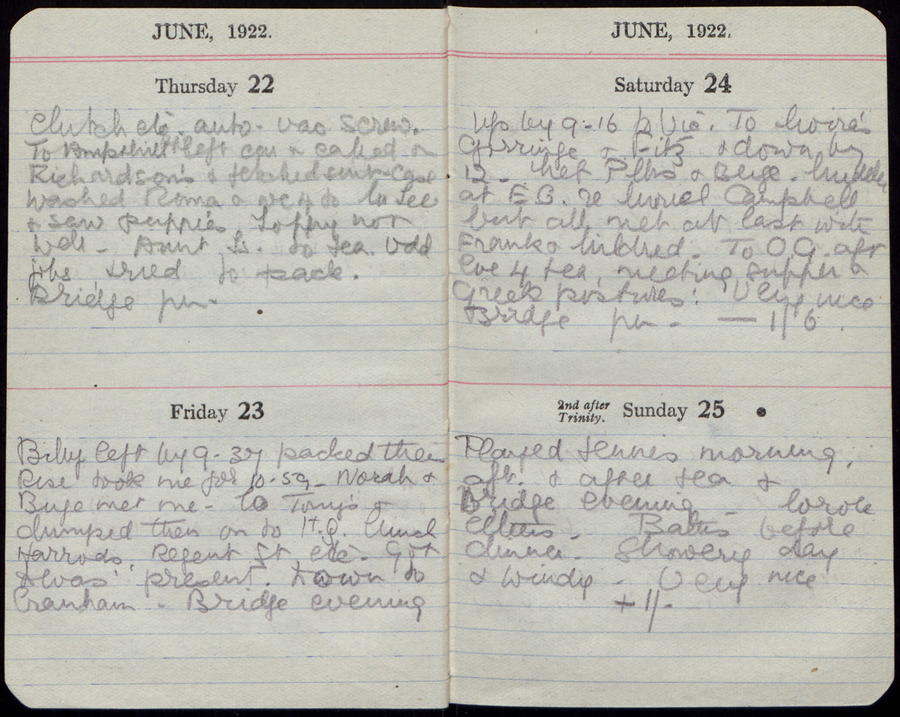 JUNE, 1922.
Thursday 22
Clutch etc. auto-vac screw.
To left car & called on
Richardson's & fetched suit-case
Washed Roma & went to
& saw puppies Toffy not
well - Aunt to tea. Odd
jobs tried to pack.
Bridge pm -
Friday 23
Billy left by 9-37 packed then
Rise took me for 10-59 - Norah &
met me - to Tony's &
dumped then on to H.Q. lunch
Harrods, Regent St etc - Got
present. Down to
Cranham - Bridge evening
JUNE, 1922.
Saturday 24
Up by 9-16 to Vic. To
Gorringe & Fitz & down by
12 - Met &
at E.G. Muriel Campbell
but all met at last with
Frank & Mildred. To O.G. aft
tea, meeting supper &
Greek postures! Very nice
Bridge pm - — 1/6.
2nd after
Trinity.
Sunday 25
Played tennis morning,
aft. & after tea &
Bridge evening - Wrote
. Baths before
dinner - Showery day
& windy - Very nice
+ 1/-